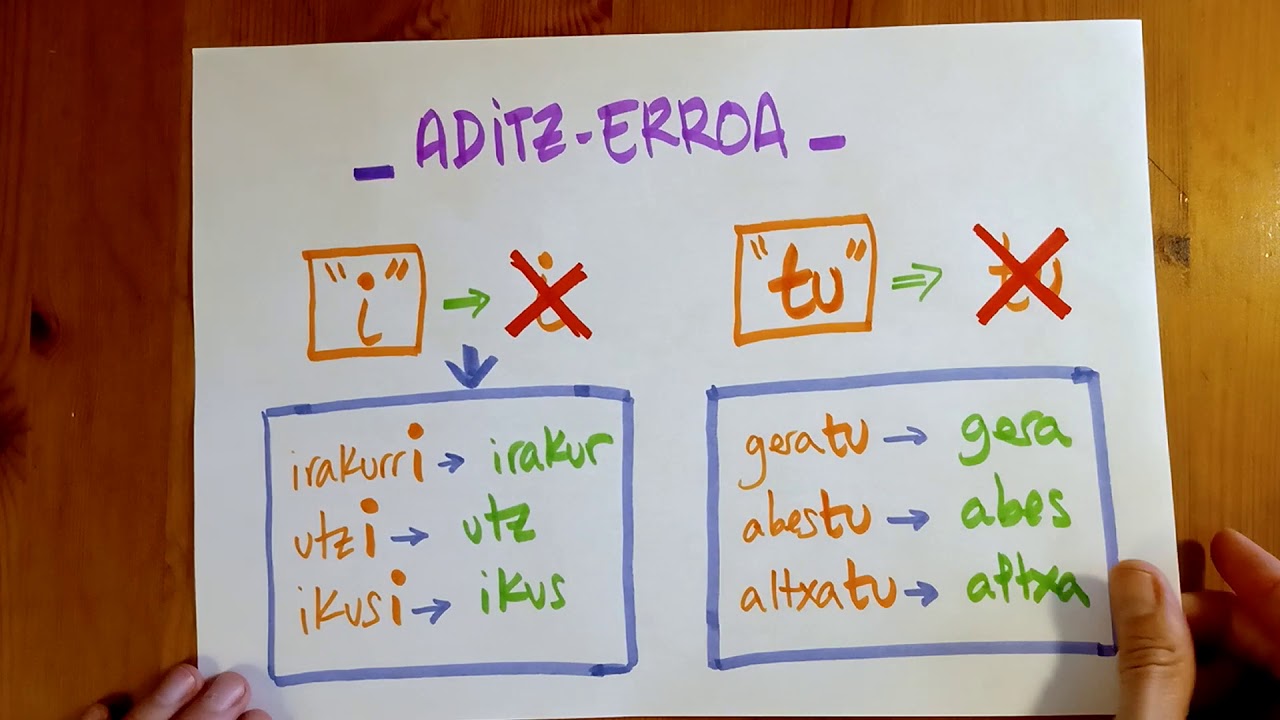 _ ADITZ-ERROA _
"i" → i
"tu" ⇒ tu
irakurri → irakur
utzi → utz
ikusi → ikus
geratu → gera
abestu → abes
altxatu → altxa